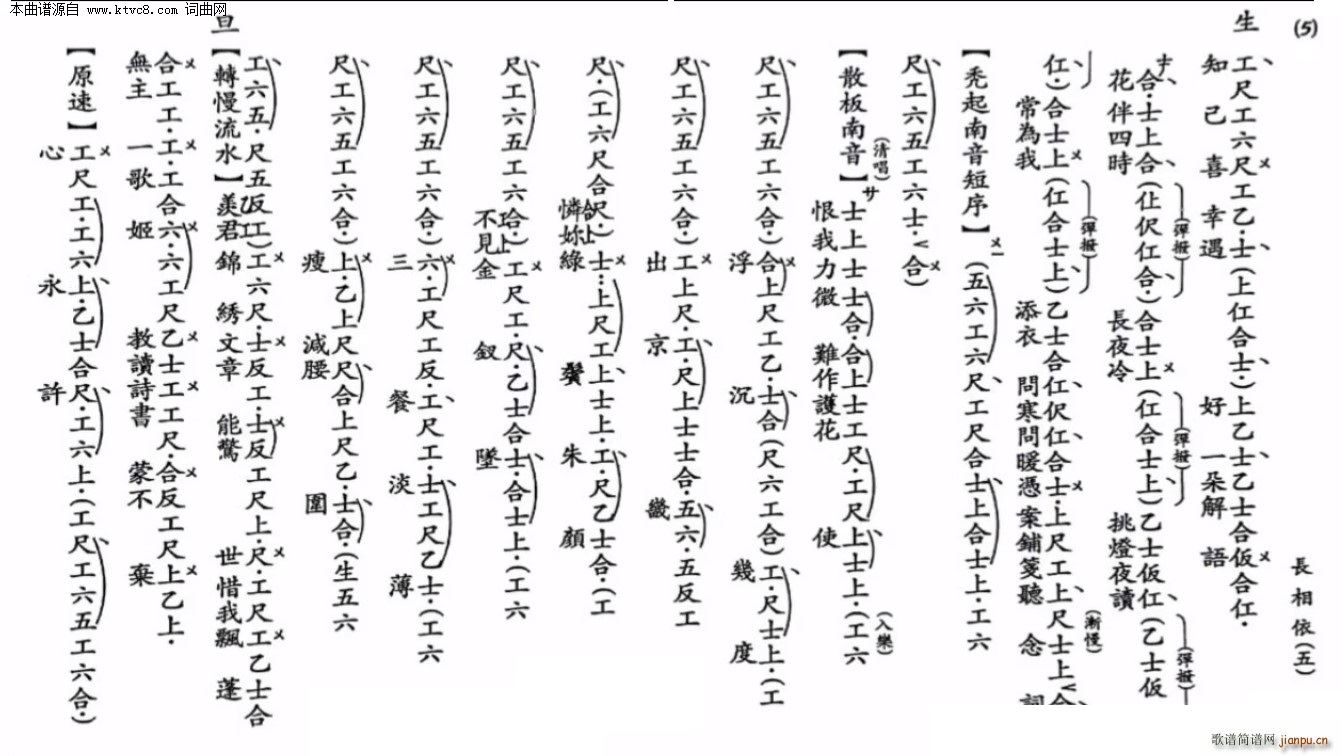 本曲谱源自 www.ktvc8.com 词曲网
(5)
長相依(五)
生
工尺工六尺工乙·士(上仜合士·)上乙士乙士合仮合仜·
知己喜幸遇 好一朵解語
合·士上合(仩伬仜合·)合士上(仜合士上)乙士仮仜(乙士仮
花伴四時 長夜冷 挑燈夜讀
(彈撥)
(彈撥)
(彈撥)
仜·)合士上(仜合士上)乙士合仜伬仜合士·上尺工上尺士上
常為我 添衣 問寒問暖憑案鋪箋聽念
(彈撥)
(漸慢)
【禿起南音短序】(五六工六尺工尺合士上合士上·工六
尺工六五工六士·合)
【散板南音】サ士上士士合·合上士工尺·工尺上士上·(工六
(清唱)
恨我力微 難作護花 使
(入樂)
尺工六五工六合·)合上尺工乙·士合(尺六工合)工·尺士上·(工
浮 沉 幾度
尺工六五工六合·)工上尺·工·尺上士士合·五六·五反工
出京畿
尺·(工六尺合尺·合上)士··上尺工上士上·工·尺乙士合·(工
憐妳綠鬢朱顏
尺工六五工六合·)工尺工·尺·乙士合士·合士上·(工六
不見金釵墜
尺工六五工六合·)六·工尺工反·工尺工·士工尺乙士·(工六
三餐淡薄
尺工六五工六合·)上·乙上尺尺合上尺乙·士合·(生五六
瘦減腰圍
旦
工六五·尺五反工)工六尺·士反工·士反工尺上·尺·工尺工乙士合
【轉慢流水】羨君錦綉文章 能驚世惜我飄蓬
合工工·工·工合六·六工尺乙士工工尺·合反工尺上乙上·
無主一歌姬 教讀詩書 蒙不棄
【原速】工尺工·工六上·乙士合尺·工六上·(工尺工六五·工六合·)
心永許
歌谱简谱网 jianpu.cn